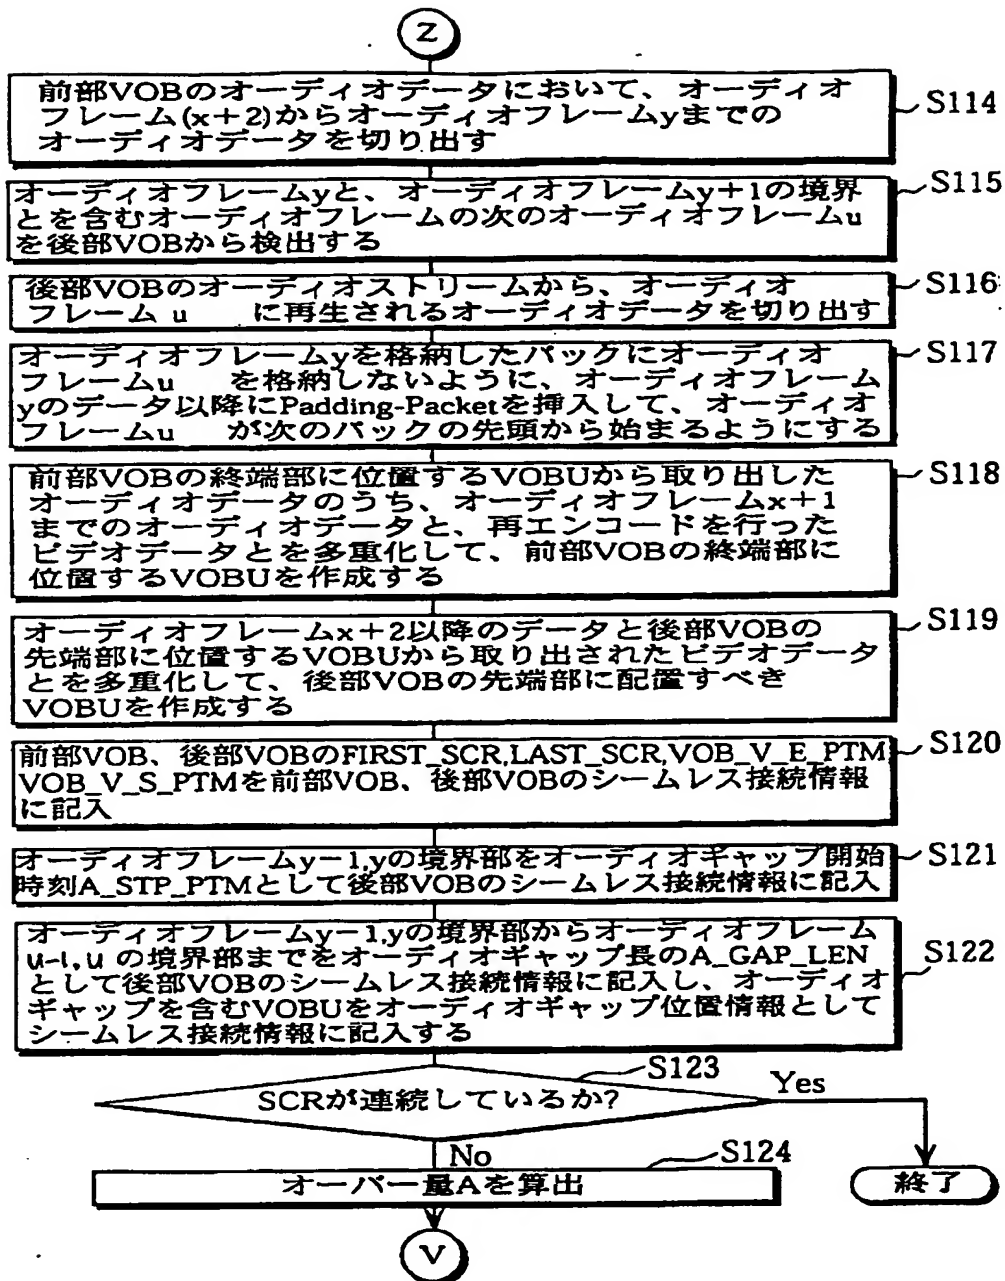 Z
前部VOBのオーディオデータにおいて、オーディオ
フレーム(x+2)からオーディオフレームyまでの
オーディオデータを切り出す
S114
オーディオフレームyと、オーディオフレームy+1の境界
とを含むオーディオフレームの次のオーディオフレームu
を後部VOBから検出する
S115
後部VOBのオーディオストリームから、オーディオ
フレーム u に再生されるオーディオデータを切り出す
S116
オーディオフレームyを格納したパックにオーディオ
フレームu を格納しないように、オーディオフレーム
yのデータ以降にPadding-Packetを挿入して、オーディオ
フレームu が次のパックの先頭から始まるようにする
S117
前部VOBの終端部に位置するVOBUから取り出した
オーディオデータのうち、オーディオフレームx+1
までのオーディオデータと、再エンコードを行った
ビデオデータとを多重化して、前部VOBの終端部に
位置するVOBUを作成する
S118
オーディオフレームx+2以降のデータと後部VOBの
先端部に位置するVOBUから取り出されたビデオデータ
とを多重化して、後部VOBの先端部に配置すべき
VOBUを作成する
S119
前部VOB、後部VOBのFIRST_SCR,LAST_SCR,VOB_V_E_PTM
VOB_V_S_PTMを前部VOB、後部VOBのシームレス接続情報
に記入
S120
オーディオフレームy-1,yの境界部をオーディオギャップ開始
時刻A_STP_PTMとして後部VOBのシームレス接続情報に記入
S121
オーディオフレームy-1,yの境界部からオーディオフレーム
u-1,u の境界部までをオーディオギャップ長のA_GAP_LEN
として後部VOBのシームレス接続情報に記入し、オーディオ
ギャップを含むVOBUをオーディオギャップ位置情報として
シームレス接続情報に記入する
S122
SCRが連続しているか?
S123
Yes
No
オーバー量Aを算出
S124
終了
V